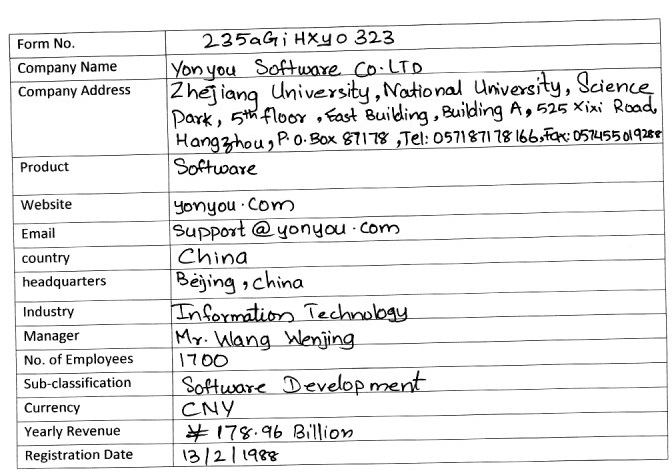 Form No. 235aGiHXyO323
Company Name Yonyou Software Co.LTD
Company Address Zhejiang University, National University, Science
Park, 5th floor, East Building, Building A, 525 Xixi Road,
Hangzhou, P.O.Box 87178, Tel: 057187178166, Fax: 057455019288
Product Software
Website yonyou.com
Email Support@yonyou.com
country China
headquarters Beijing, china
Industry Information Technology
Manager Mr. Wang Wenjing
No. of Employees 1700
Sub-classification Software Development
Currency CNY
Yearly Revenue ¥ 178.96 Billion
Registration Date 13/2/1988